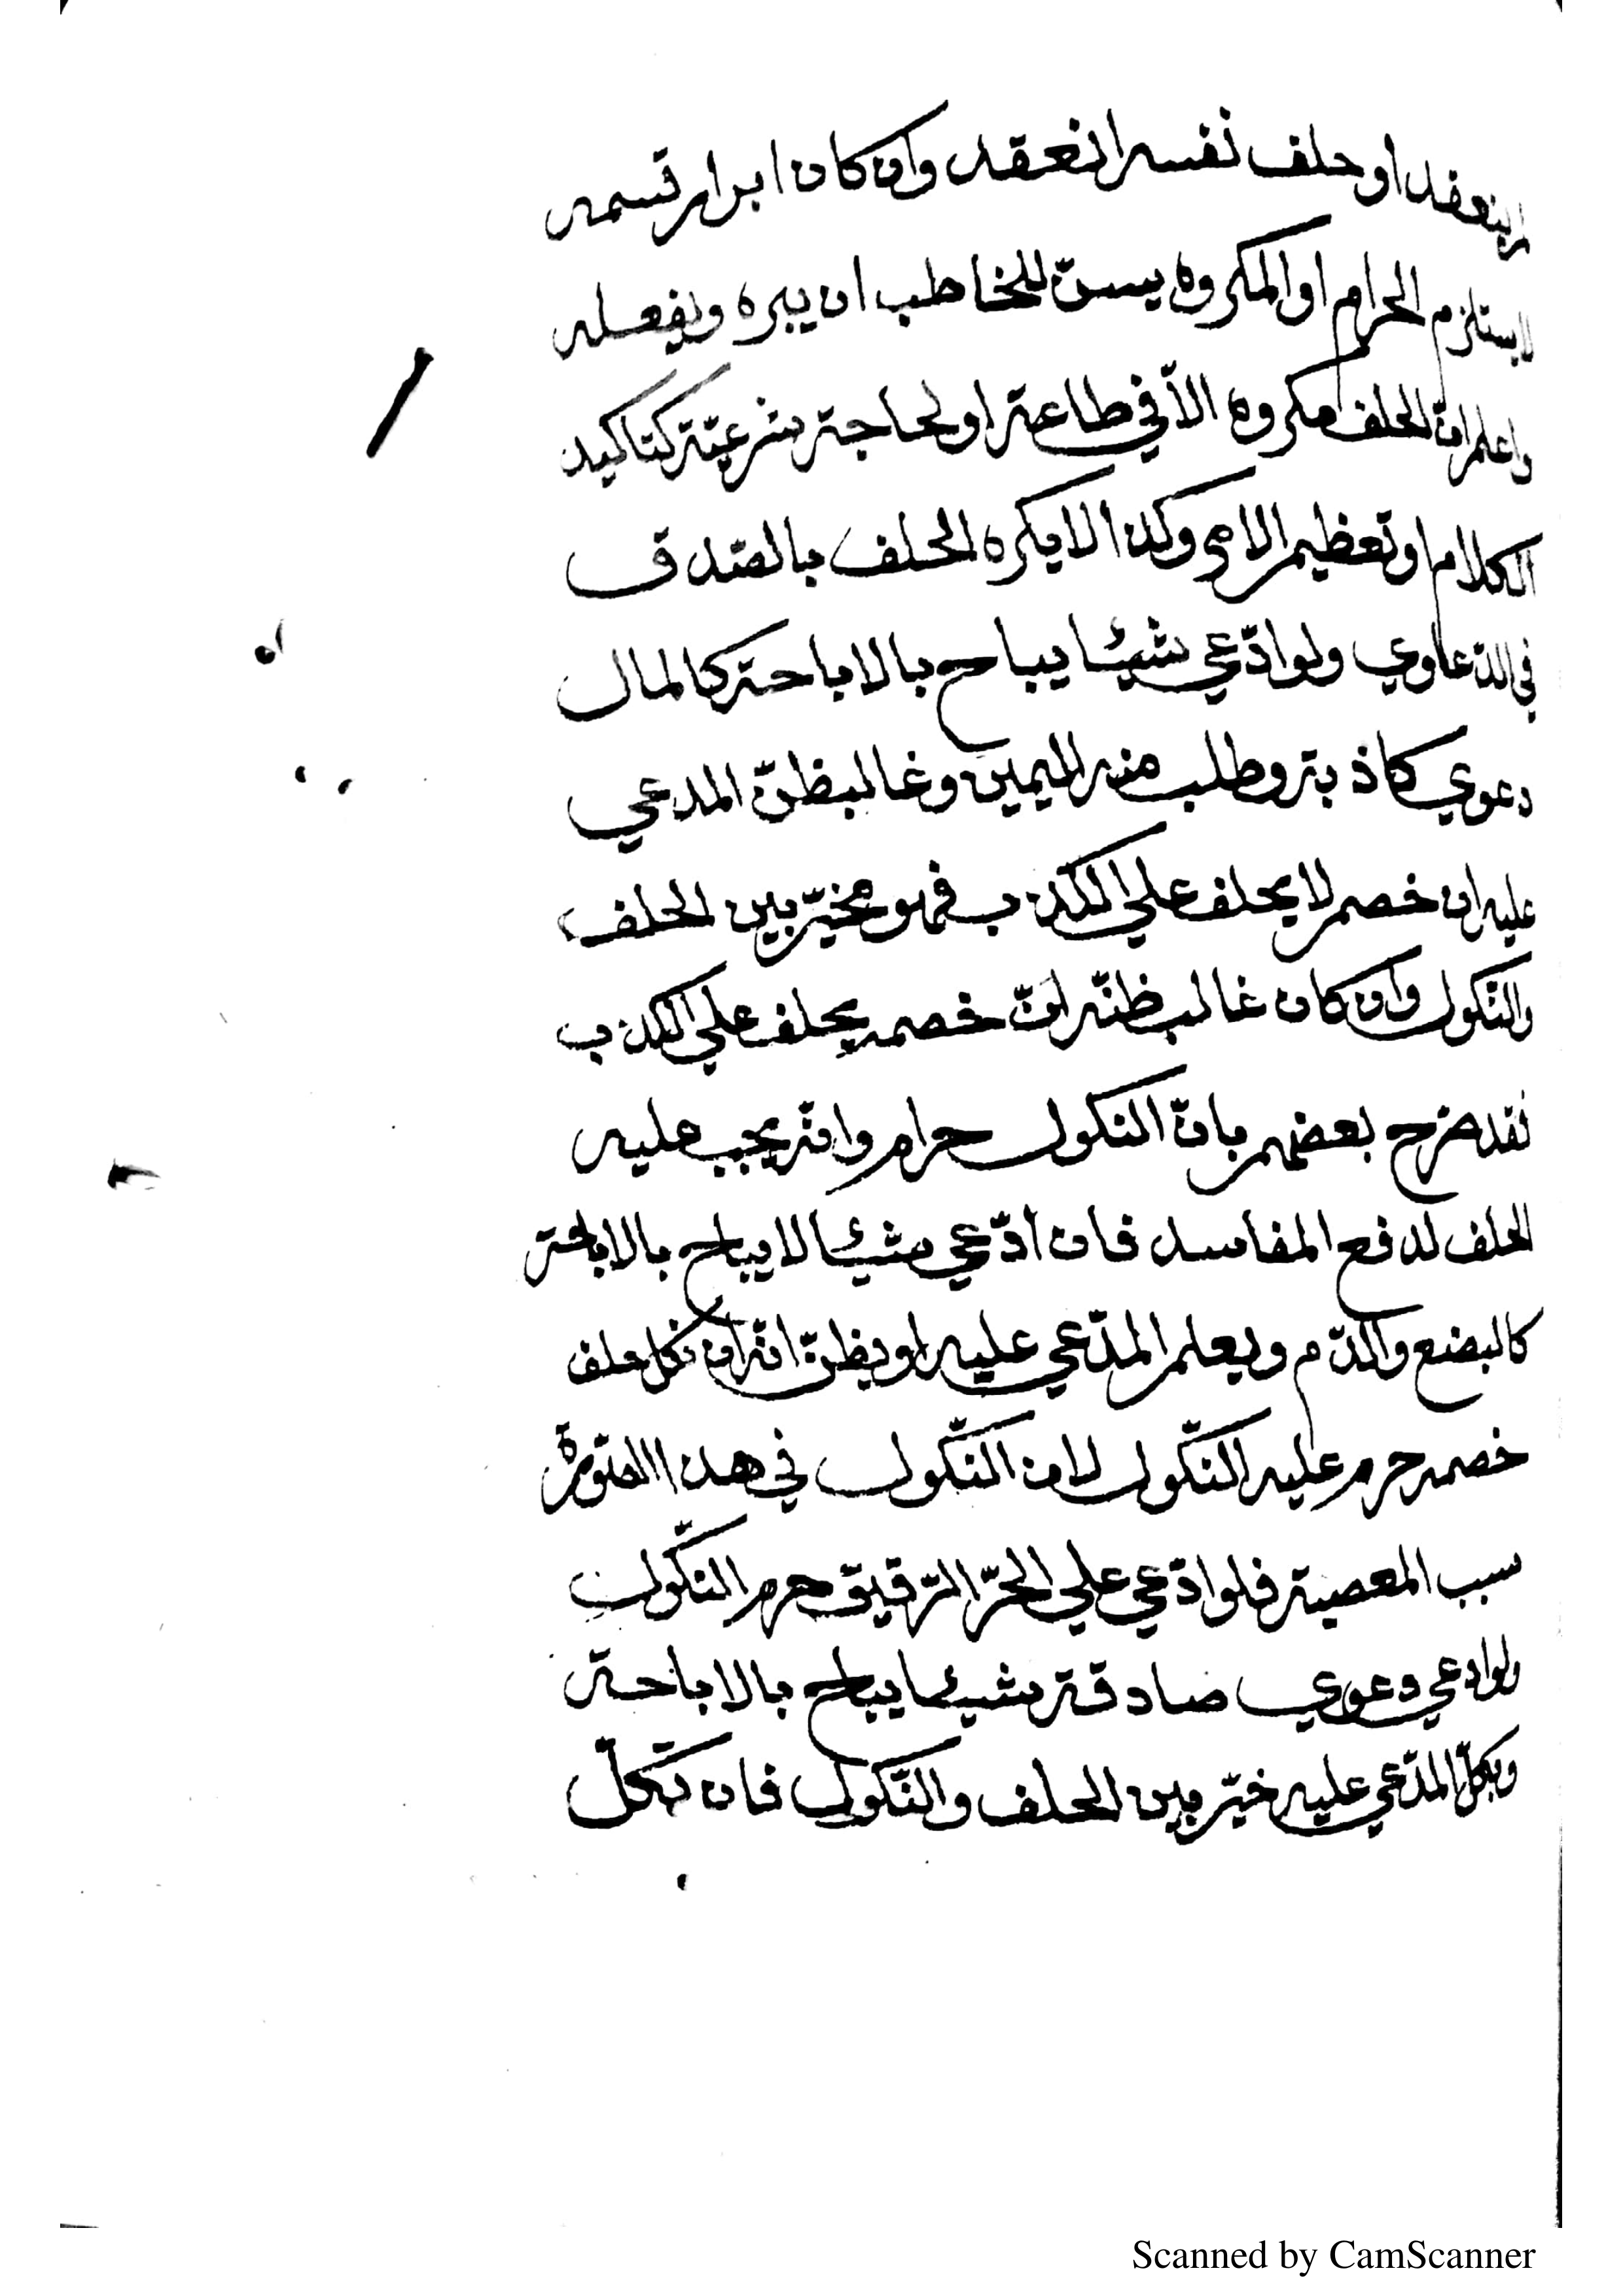 لم ينعقد او حلف نفسه انعقد وان كان ابرار قسمه
لا يستلزم الحرام او المكروه يسنّ للمخاطب ان يبره ويفعله
واعلم انّ الحلف مكروه الاّ في طاعة او لحاجة شرعيّة كتاكيد
الكلام او تعظيم الامر وكذا لا يكره الحلف بالصّدق
في الدّعاوي ولو ادّعي شيئا يباح بالاباحة كالمال
دعوي كاذبة وطلب منه اليمين وغالب ظنّ المدعي
عليه ان خصمه لا يحلف علي الكذب فهو مخيّر بين الحلف
والنّكول وان كان غالب ظنّه انّ خصمه يحلف علي الكذب
فقد صرح بعضهم بانّ النكول حرام وانّه يجب عليه
الحلف لدفع المفاسد فان ادّعي شيئا لا يباح بالاباحة
كالبضع والدّم ويعلم المدّعي عليه او يظنّ انّه ان نكل حلف
خصمه حرم عليه النّكول لان النّكول في هذا الصّورة
سبب المعصية فلو ادّعي علي الحرّ الرّقيق حرم النّكول
ولو ادعي دعوي صادقة شيئا يباح بالاباحة
المدّعي عليه خيّر بين الحلف والنّكول فان نكل
Scanned by CamScanner